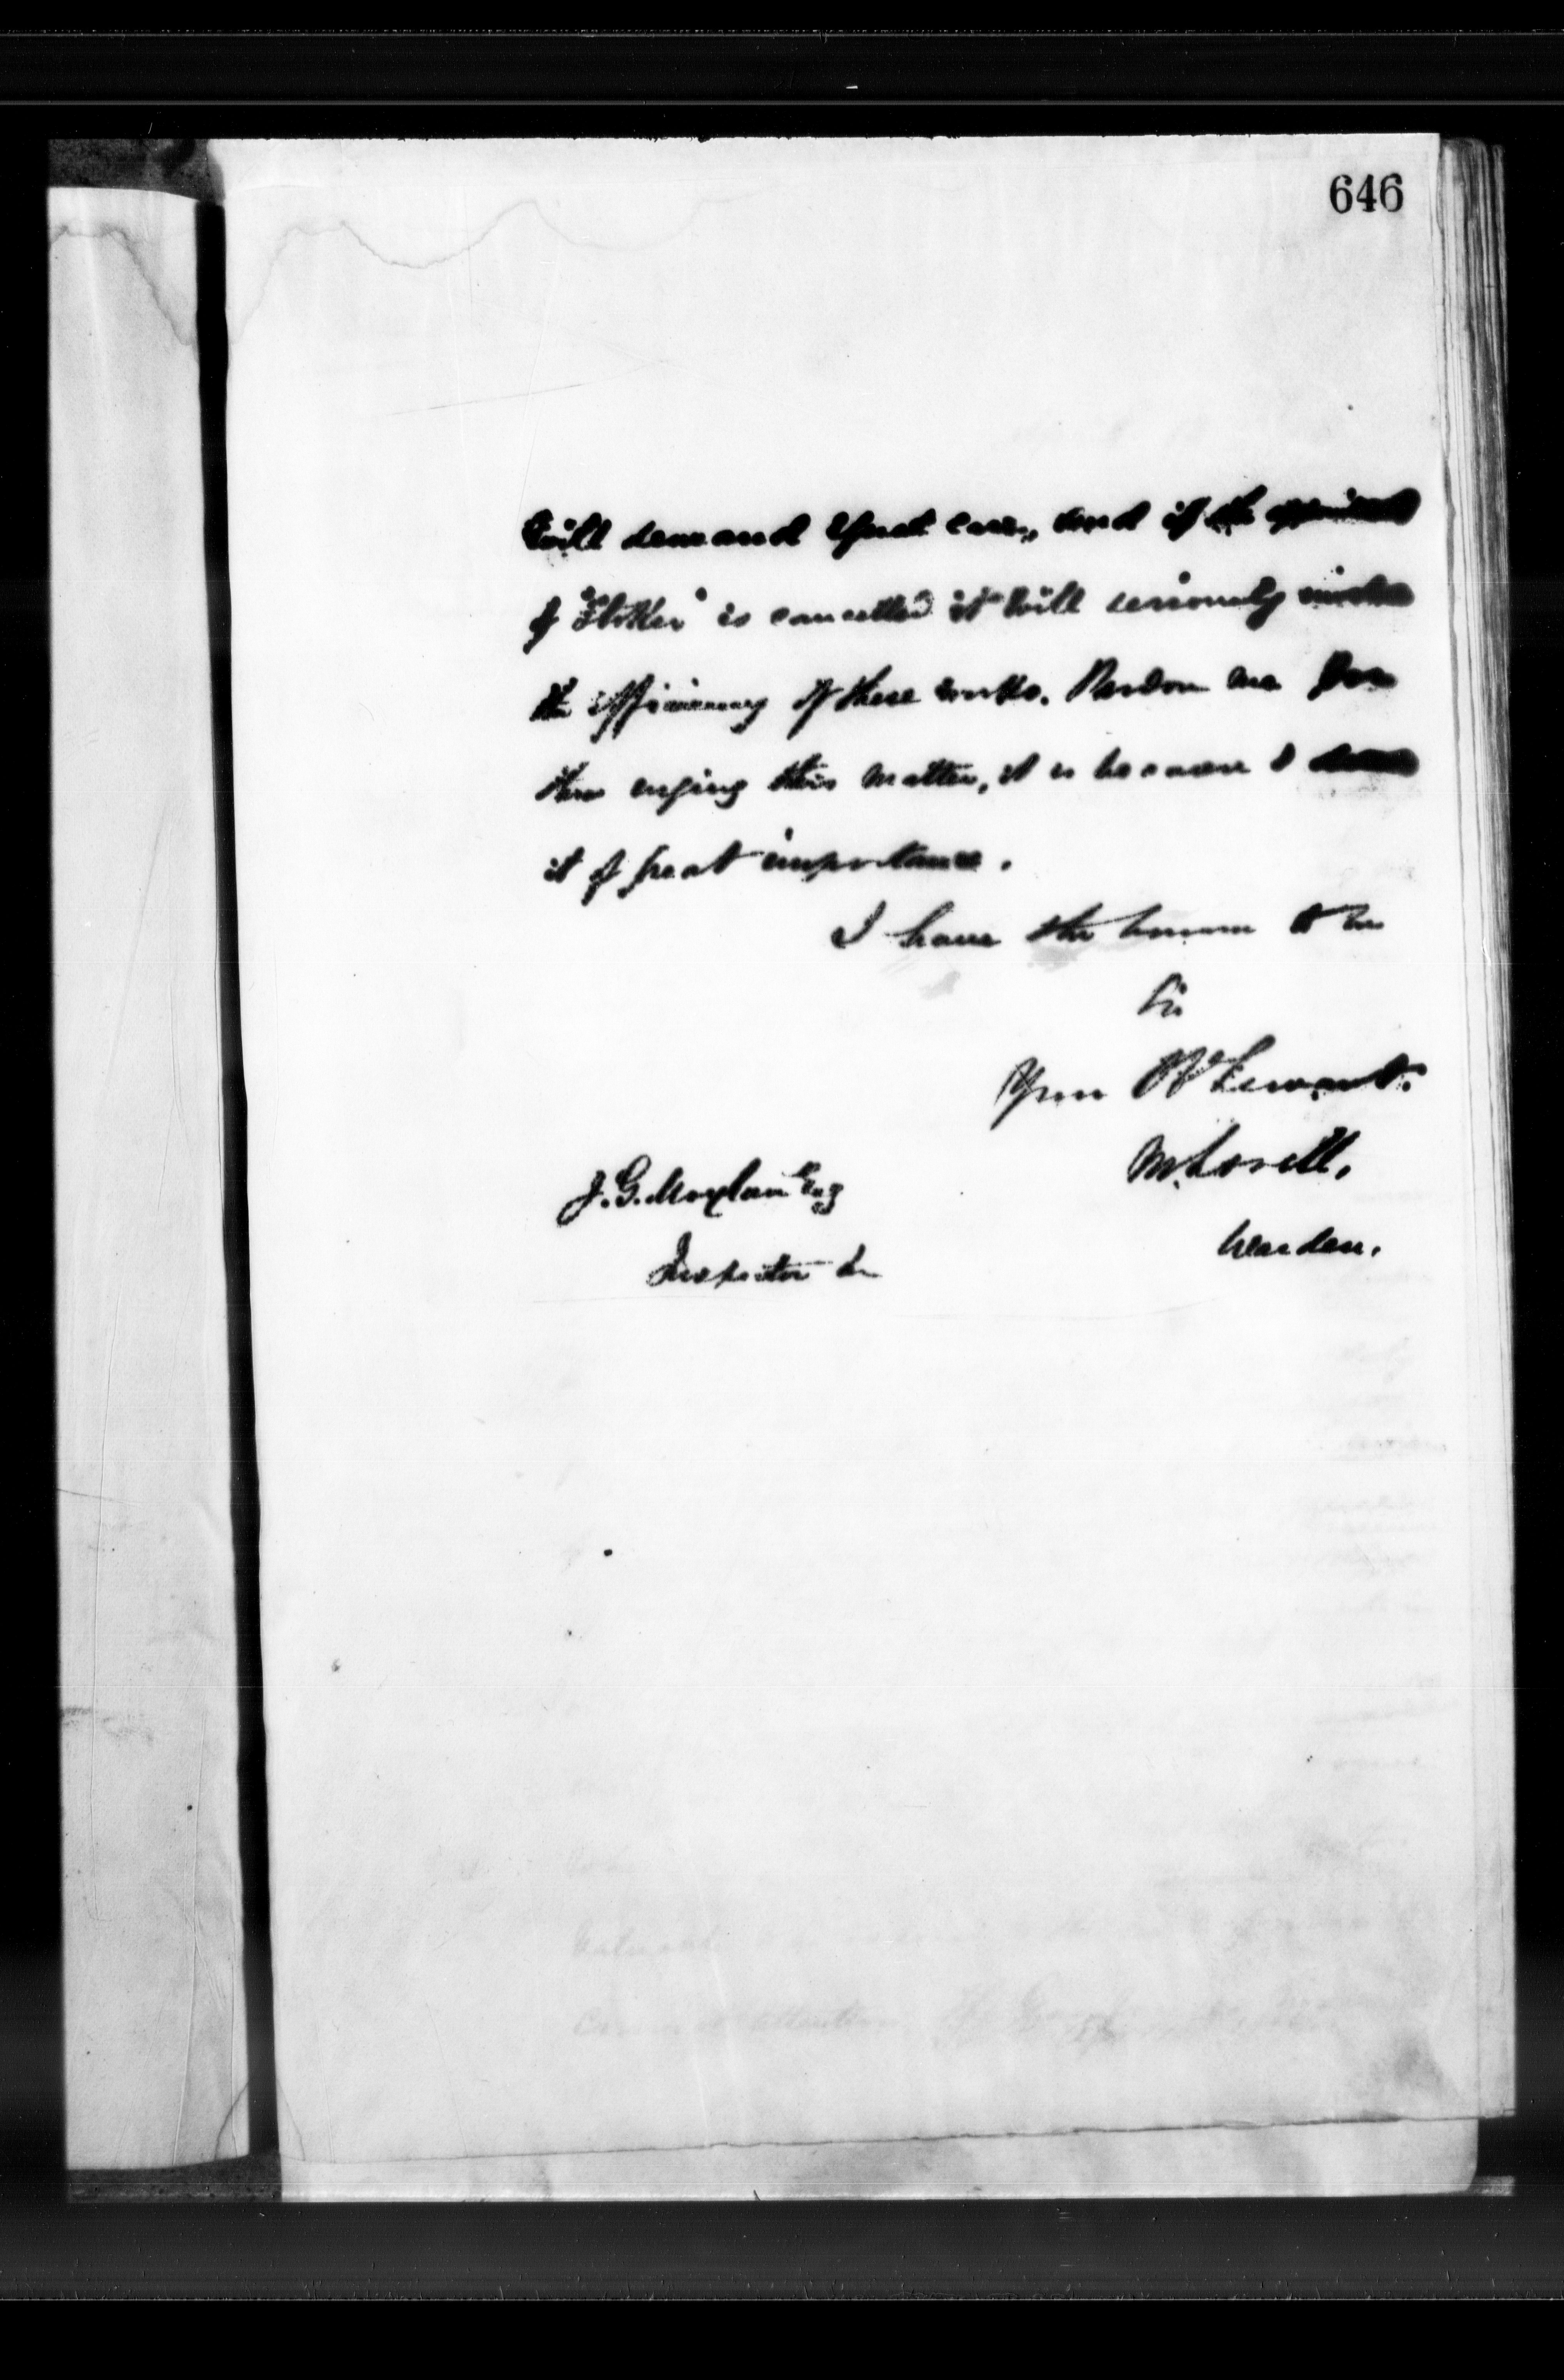 646
will demand great care, and if the
of "Stoker" is cancelled it will seriously
the efficiency of these works. Pardon me for
thus urging this matter, it is because I deem
it of great importance.
I have the honor to be
Sir
Your Ob^t Servant.
J. G. Moylan Esq
Inspector &c
Warden.